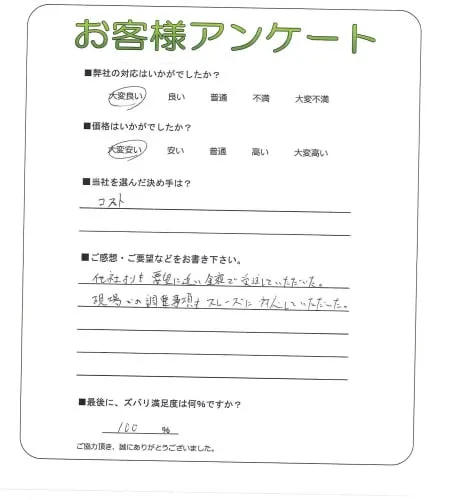 お客様アンケート
■弊社の対応はいかがでしたか？
大変良い 良い 普通 不満 大変不満
■価格はいかがでしたか？
大変安い 安い 普通 高い 大変高い
■当社を選んだ決め手は？
コスト
■ご感想・ご要望などをお書き下さい。
他社よりも要望に近い金額で受注していただいた。
現場での調整事項もスムーズに対応していただいた。
■最後に、ズバリ満足度は何%ですか？
100 %
ご協力頂き、誠にありがとうございました。